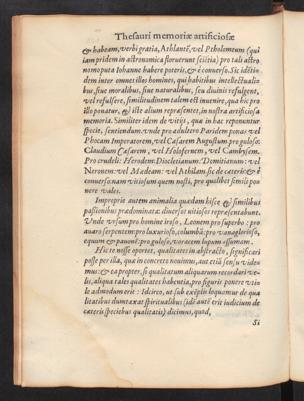 Thesauri memoriæ artificiosæ
& habeam, verbi gratia, Athlantē, vel Ptholomeum (qui
iam pridem in astronomica floruerunt sciētia) pro tali astro
nomo puta Iohanne habere poteris, & è conuerso. Sic idētidem
inter omnes illos homines, qui habitibus intellectualibus,
siue moralibus, siue naturalibus, seu diuinis refulgent,
vel refulsere, similitudinem talem est inuenire, qua hic pro
illo ponatur, & iste alium repræsentet, in nostra artificiosa
memoria. Similiter idem de vitijs, quæ in hac reponuntur
specie, sentiendum. vnde pro adultero Paridem ponas: vel
Phocam Imperatorem, vel Cæsarem Augustum pro guloso:
Claudium Cæsarem, vel Holofernem, vel Cambysem.
Pro crudeli: Herodem: Diocletianum: Domitianum: vel
Neronem: vel Medæam: vel Athilam. sic de cæteris & è
conuerso: nam vitiosum quem nosti, pro quolibet simili ponere
vales.
Improprie autem animalia quædam hisce & similibus
passionibus prædominata: diuersos vitiosos repræsentabunt.
Vnde vrsum pro homine iroso, Leonem pro superbo: pro
auaro serpentem: pro luxurioso, columbā: pro vanaglorioso,
equum & pauonē: pro guloso, voracem lupum assumam.
Hic te nosse oportet, qualitates in abstracto, significari
posse per illa, quæ in concreto nouimus, aut etiā sensu videmus:
& ea propter, si qualitatum aliquarum recordari velis,
aliqua tales qualitates habentia, pro figuris ponere vtile
admodum erit: Idcirco, ut sub exēplis loquamur de qualitatibus
dumtaxat spiritualibus (idē autē erit iudicium de
cæteris speciebus qualitatis) dicimus, quod,
Si